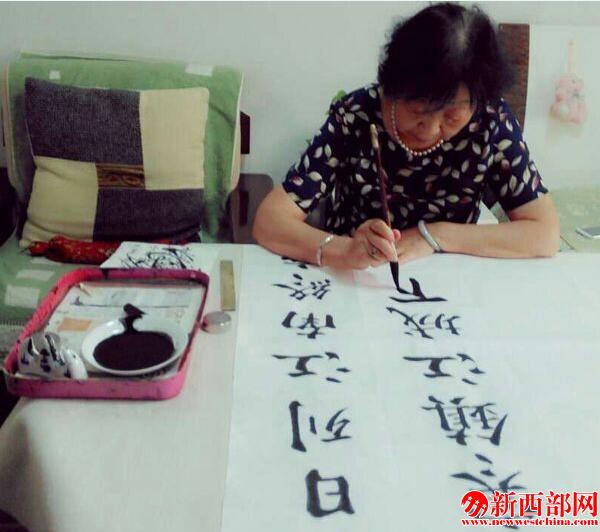 日列江南
镇江城下
新西部网
www.newwestchina.com